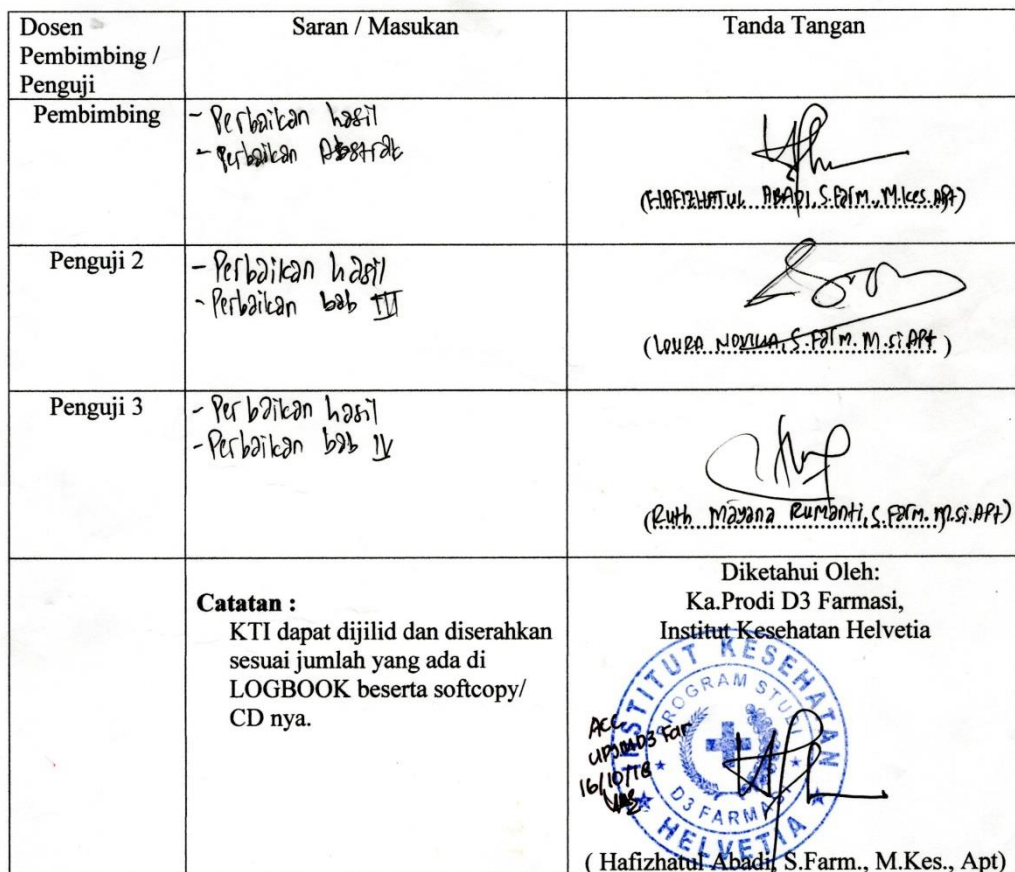 Dosen
Pembimbing /
Penguji
Saran / Masukan
Tanda Tangan
Pembimbing
- Perbaikan hasil
- Perbaikan Abstrak
(HAFIZHATUL ABADI, S.Farm., M.Kes. Apt)
Penguji 2
- Perbaikan hasil
- Perbaikan bab III
(LOURA NOVILIA, S.Farm. M.si Apt)
Penguji 3
- Perbaikan hasil
- Perbaikan bab IV
(Ruth Mayana Rumanti, S.Farm. M.si. APt)
Catatan :
KTI dapat dijilid dan diserahkan
sesuai jumlah yang ada di
LOGBOOK beserta softcopy/
CD nya.
Diketahui Oleh:
Ka.Prodi D3 Farmasi,
Institut Kesehatan Helvetia
INSTITUT KESEHATAN
PROGRAM STUDI
D3 FARMASI
HELVETIA
ACC
UPJMD3 Far
16/10/18
( Hafizhatul Abadi, S.Farm., M.Kes., Apt)